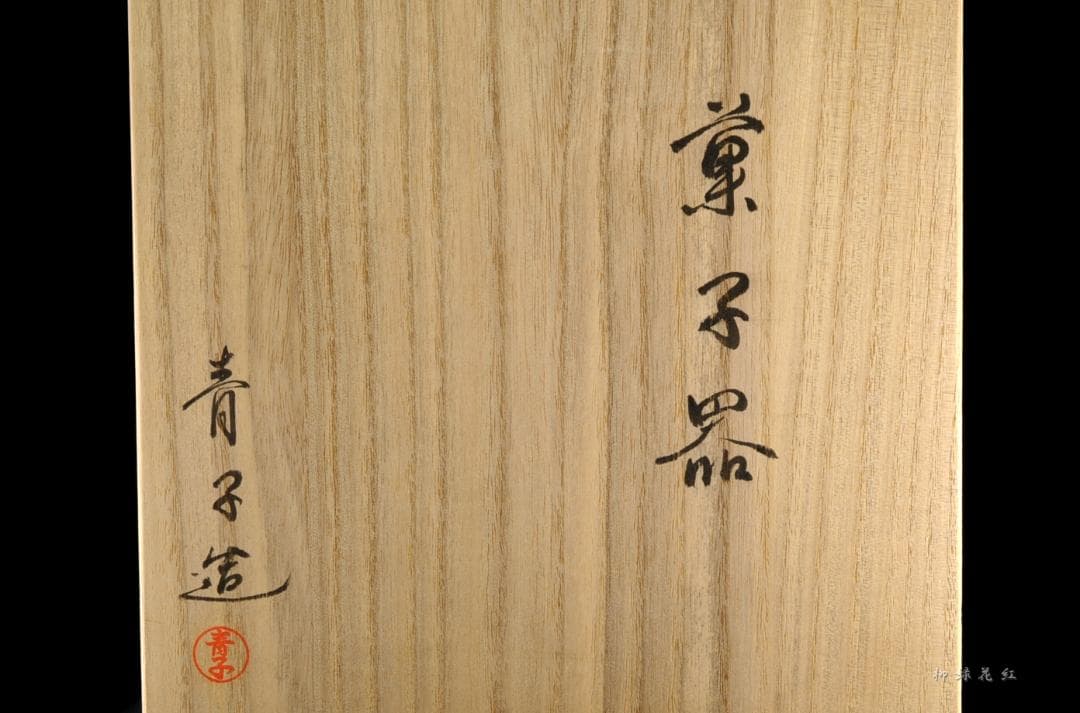 菓子器
青子造
青子
柳緑花紅